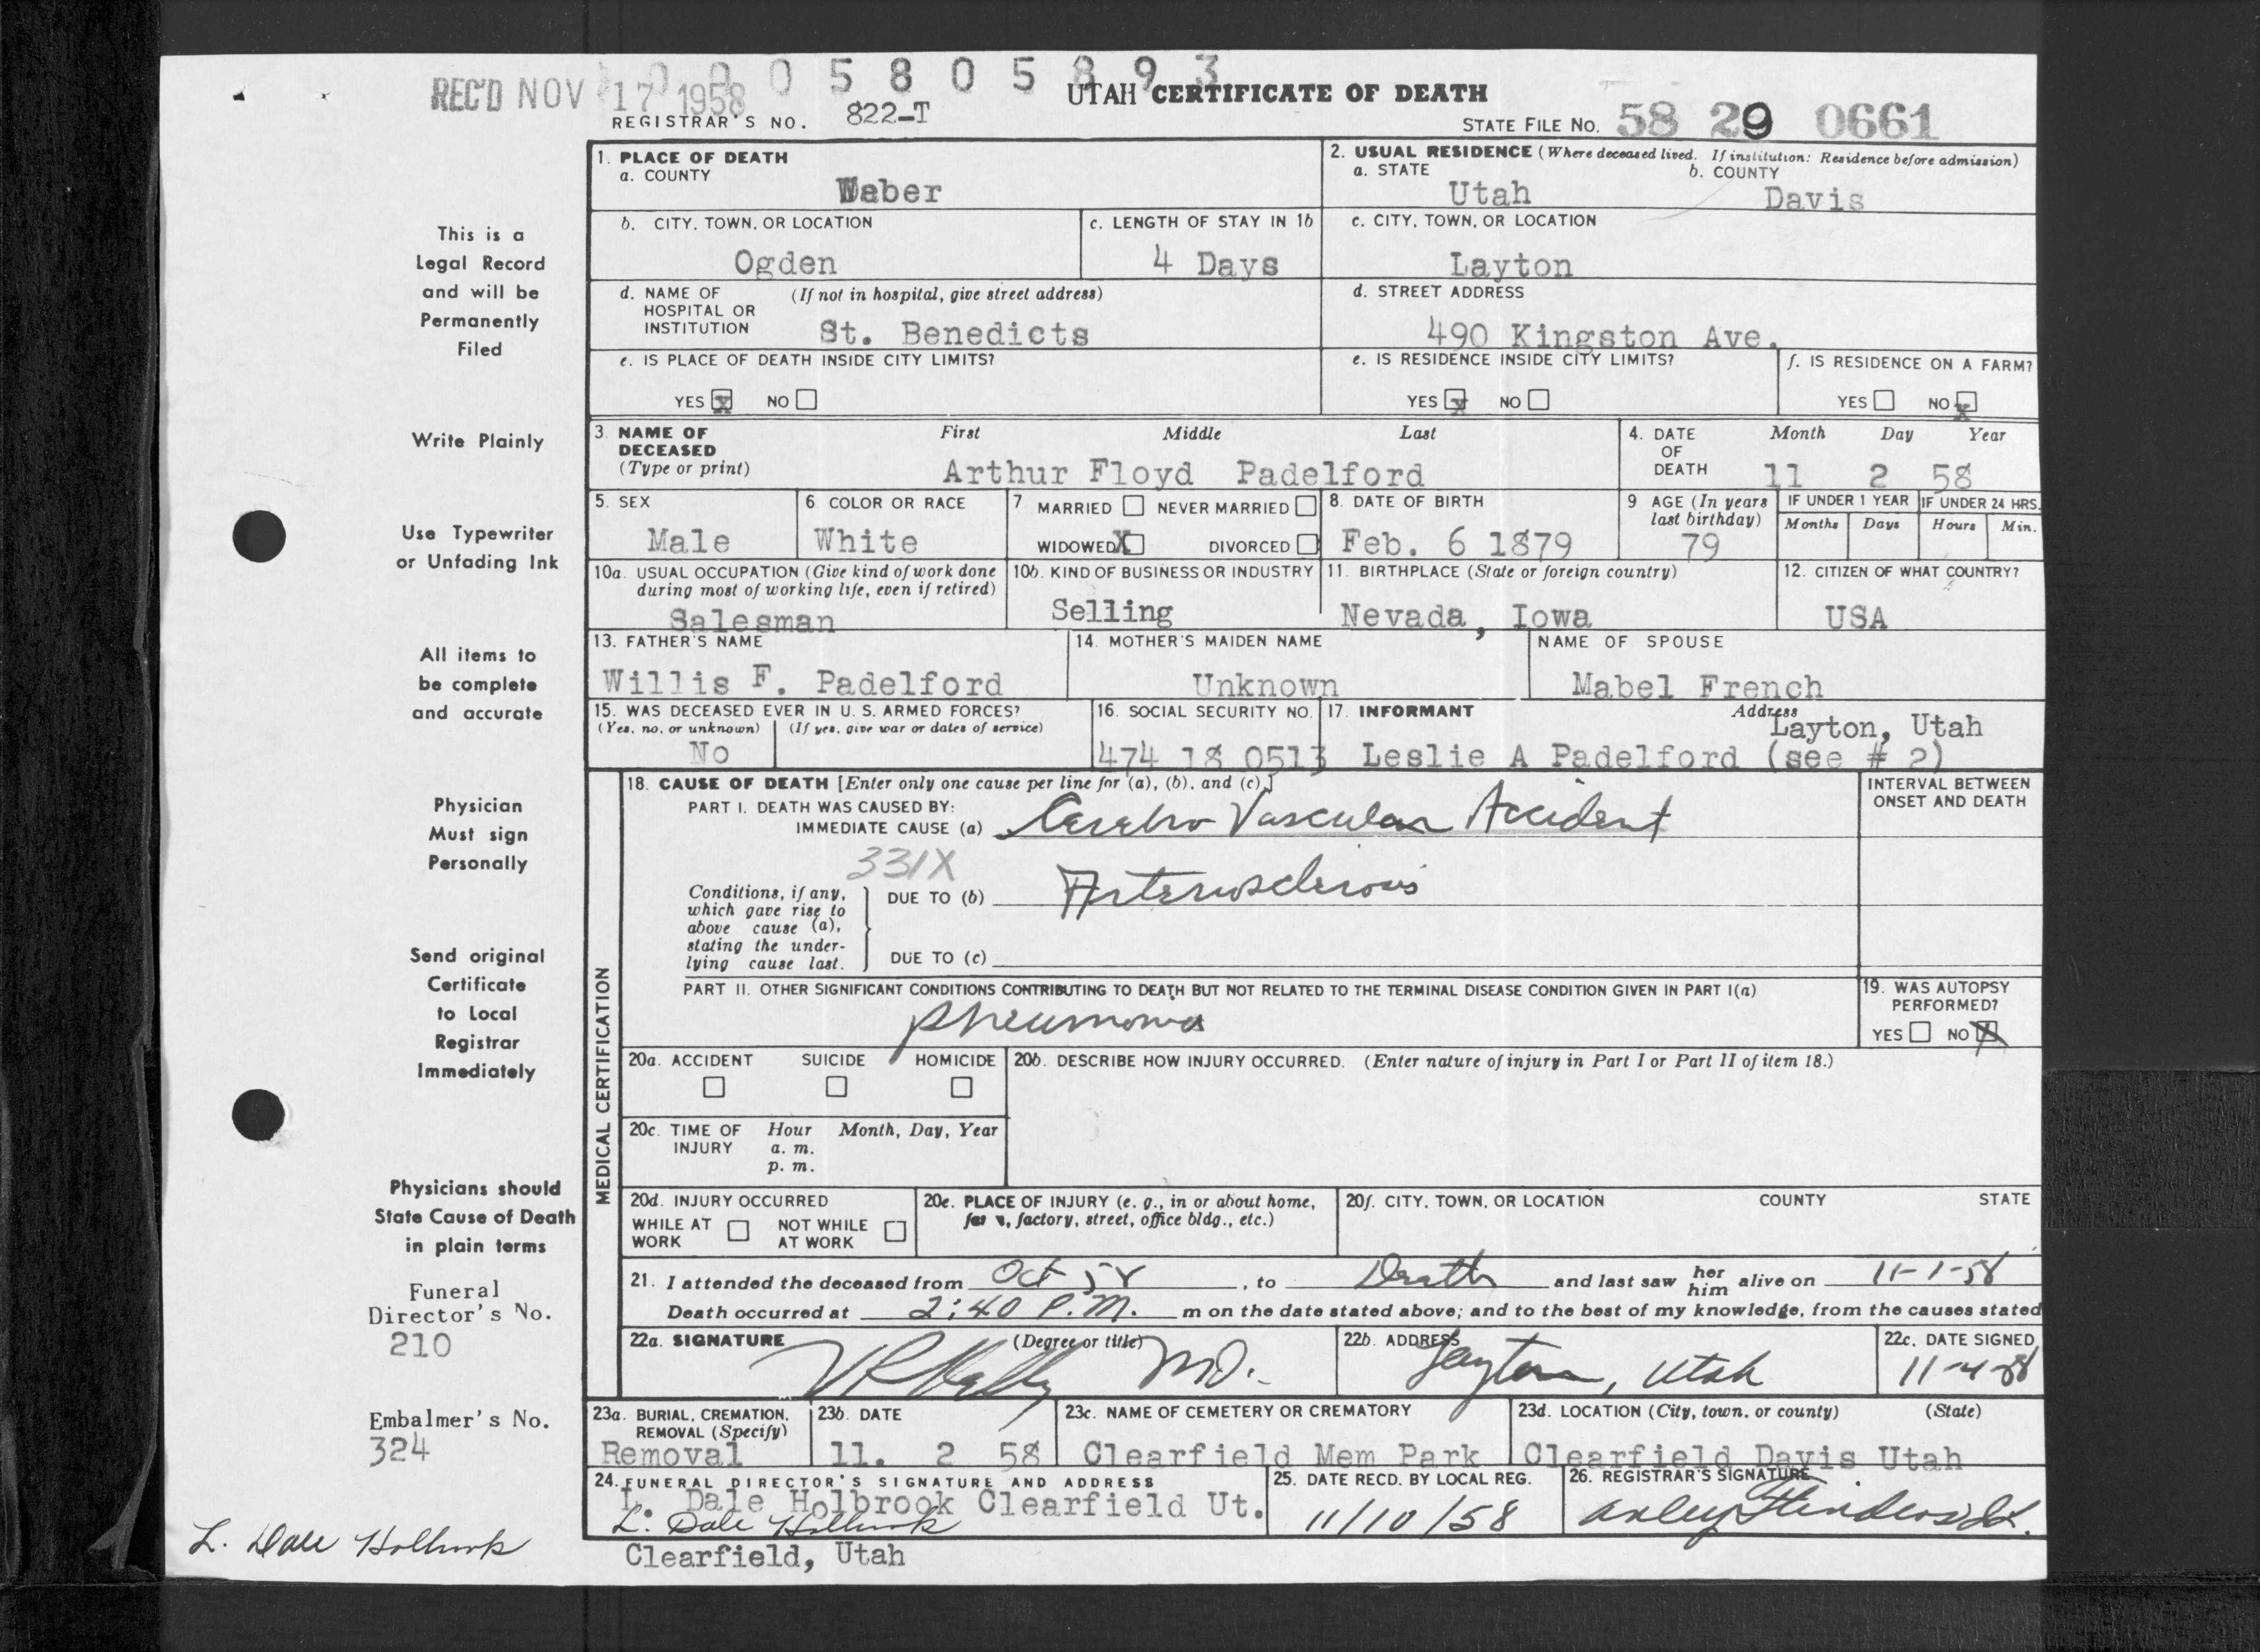 0 0 0 5 8 0 5 8 9 3
REC'D NOV 17 1958
UTAH CERTIFICATE OF DEATH
REGISTRAR'S NO. 822-T
STATE FILE NO. 58 29 0661
1. PLACE OF DEATH
a. COUNTY
Weber
2. USUAL RESIDENCE (Where deceased lived. If institution: Residence before admission)
a. STATE b. COUNTY
Utah Davis
b. CITY, TOWN, OR LOCATION
Ogden
c. LENGTH OF STAY IN 1b
4 Days
c. CITY, TOWN, OR LOCATION
Layton
d. NAME OF (If not in hospital, give street address)
HOSPITAL OR
INSTITUTION St. Benedicts
d. STREET ADDRESS
490 Kingston Ave.
e. IS PLACE OF DEATH INSIDE CITY LIMITS?
YES X NO
e. IS RESIDENCE INSIDE CITY LIMITS?
YES X NO
f. IS RESIDENCE ON A FARM?
YES NO X
3. NAME OF DECEASED
(Type or print)
First Middle Last
Arthur Floyd Padelford
4. DATE OF DEATH
Month Day Year
11 2 58
5. SEX
Male
6 COLOR OR RACE
White
7 MARRIED NEVER MARRIED
WIDOWED X DIVORCED
8. DATE OF BIRTH
Feb. 6 1879
9 AGE (In years last birthday)
79
IF UNDER 1 YEAR
Months Days
IF UNDER 24 HRS.
Hours Min.
10a. USUAL OCCUPATION (Give kind of work done
during most of working life, even if retired)
Salesman
10b. KIND OF BUSINESS OR INDUSTRY
Selling
11. BIRTHPLACE (State or foreign country)
Nevada, Iowa
12. CITIZEN OF WHAT COUNTRY?
USA
13. FATHER'S NAME
Willis F. Padelford
14. MOTHER'S MAIDEN NAME
Unknown
NAME OF SPOUSE
Mabel French
15. WAS DECEASED EVER IN U. S. ARMED FORCES?
(Yes, no, or unknown) (If yes, give war or dates of service)
No
16. SOCIAL SECURITY NO.
474 18 0513
17. INFORMANT Address
Layton, Utah
Leslie A Padelford (see # 2)
18. CAUSE OF DEATH [Enter only one cause per line for (a), (b), and (c).]
PART I. DEATH WAS CAUSED BY:
IMMEDIATE CAUSE (a) Cerebro Vascular Accident
331X
Conditions, if any,
which gave rise to
above cause (a),
stating the under-
lying cause last.
DUE TO (b) Arteriosclerosis
DUE TO (c)
INTERVAL BETWEEN
ONSET AND DEATH
PART II. OTHER SIGNIFICANT CONDITIONS CONTRIBUTING TO DEATH BUT NOT RELATED TO THE TERMINAL DISEASE CONDITION GIVEN IN PART I(a)
pneumonia
19. WAS AUTOPSY
PERFORMED?
YES NO X
MEDICAL CERTIFICATION
20a. ACCIDENT SUICIDE HOMICIDE
20b. DESCRIBE HOW INJURY OCCURRED. (Enter nature of injury in Part I or Part II of item 18.)
20c. TIME OF INJURY
Hour Month, Day, Year
a. m.
p. m.
20d. INJURY OCCURRED
WHILE AT WORK NOT WHILE AT WORK
20e. PLACE OF INJURY (e. g., in or about home,
farm, factory, street, office bldg., etc.)
20f. CITY, TOWN, OR LOCATION COUNTY STATE
21. I attended the deceased from Oct 58, to Death and last saw her him alive on 11-1-58
Death occurred at 2:40 P.M. m on the date stated above; and to the best of my knowledge, from the causes stated
22a. SIGNATURE (Degree or title)
MD.
22b. ADDRESS
Layton, Utah
22c. DATE SIGNED
11-4-58
23a. BURIAL, CREMATION,
REMOVAL (Specify)
Removal
23b. DATE
11. 2 58
23c. NAME OF CEMETERY OR CREMATORY
Clearfield Mem Park
23d. LOCATION (City, town, or county) (State)
Clearfield Davis Utah
24. FUNERAL DIRECTOR'S SIGNATURE AND ADDRESS
L. Dale Holbrook Clearfield Ut.
L. Dale Holbrook
Clearfield, Utah
25. DATE RECD. BY LOCAL REG.
11/10/58
26. REGISTRAR'S SIGNATURE
This is a
Legal Record
and will be
Permanently
Filed
Write Plainly
Use Typewriter
or Unfading Ink
All items to
be complete
and accurate
Physician
Must sign
Personally
Send original
Certificate
to Local
Registrar
Immediately
Physicians should
State Cause of Death
in plain terms
Funeral
Director's No.
210
Embalmer's No.
324
L. Dale Holbrook